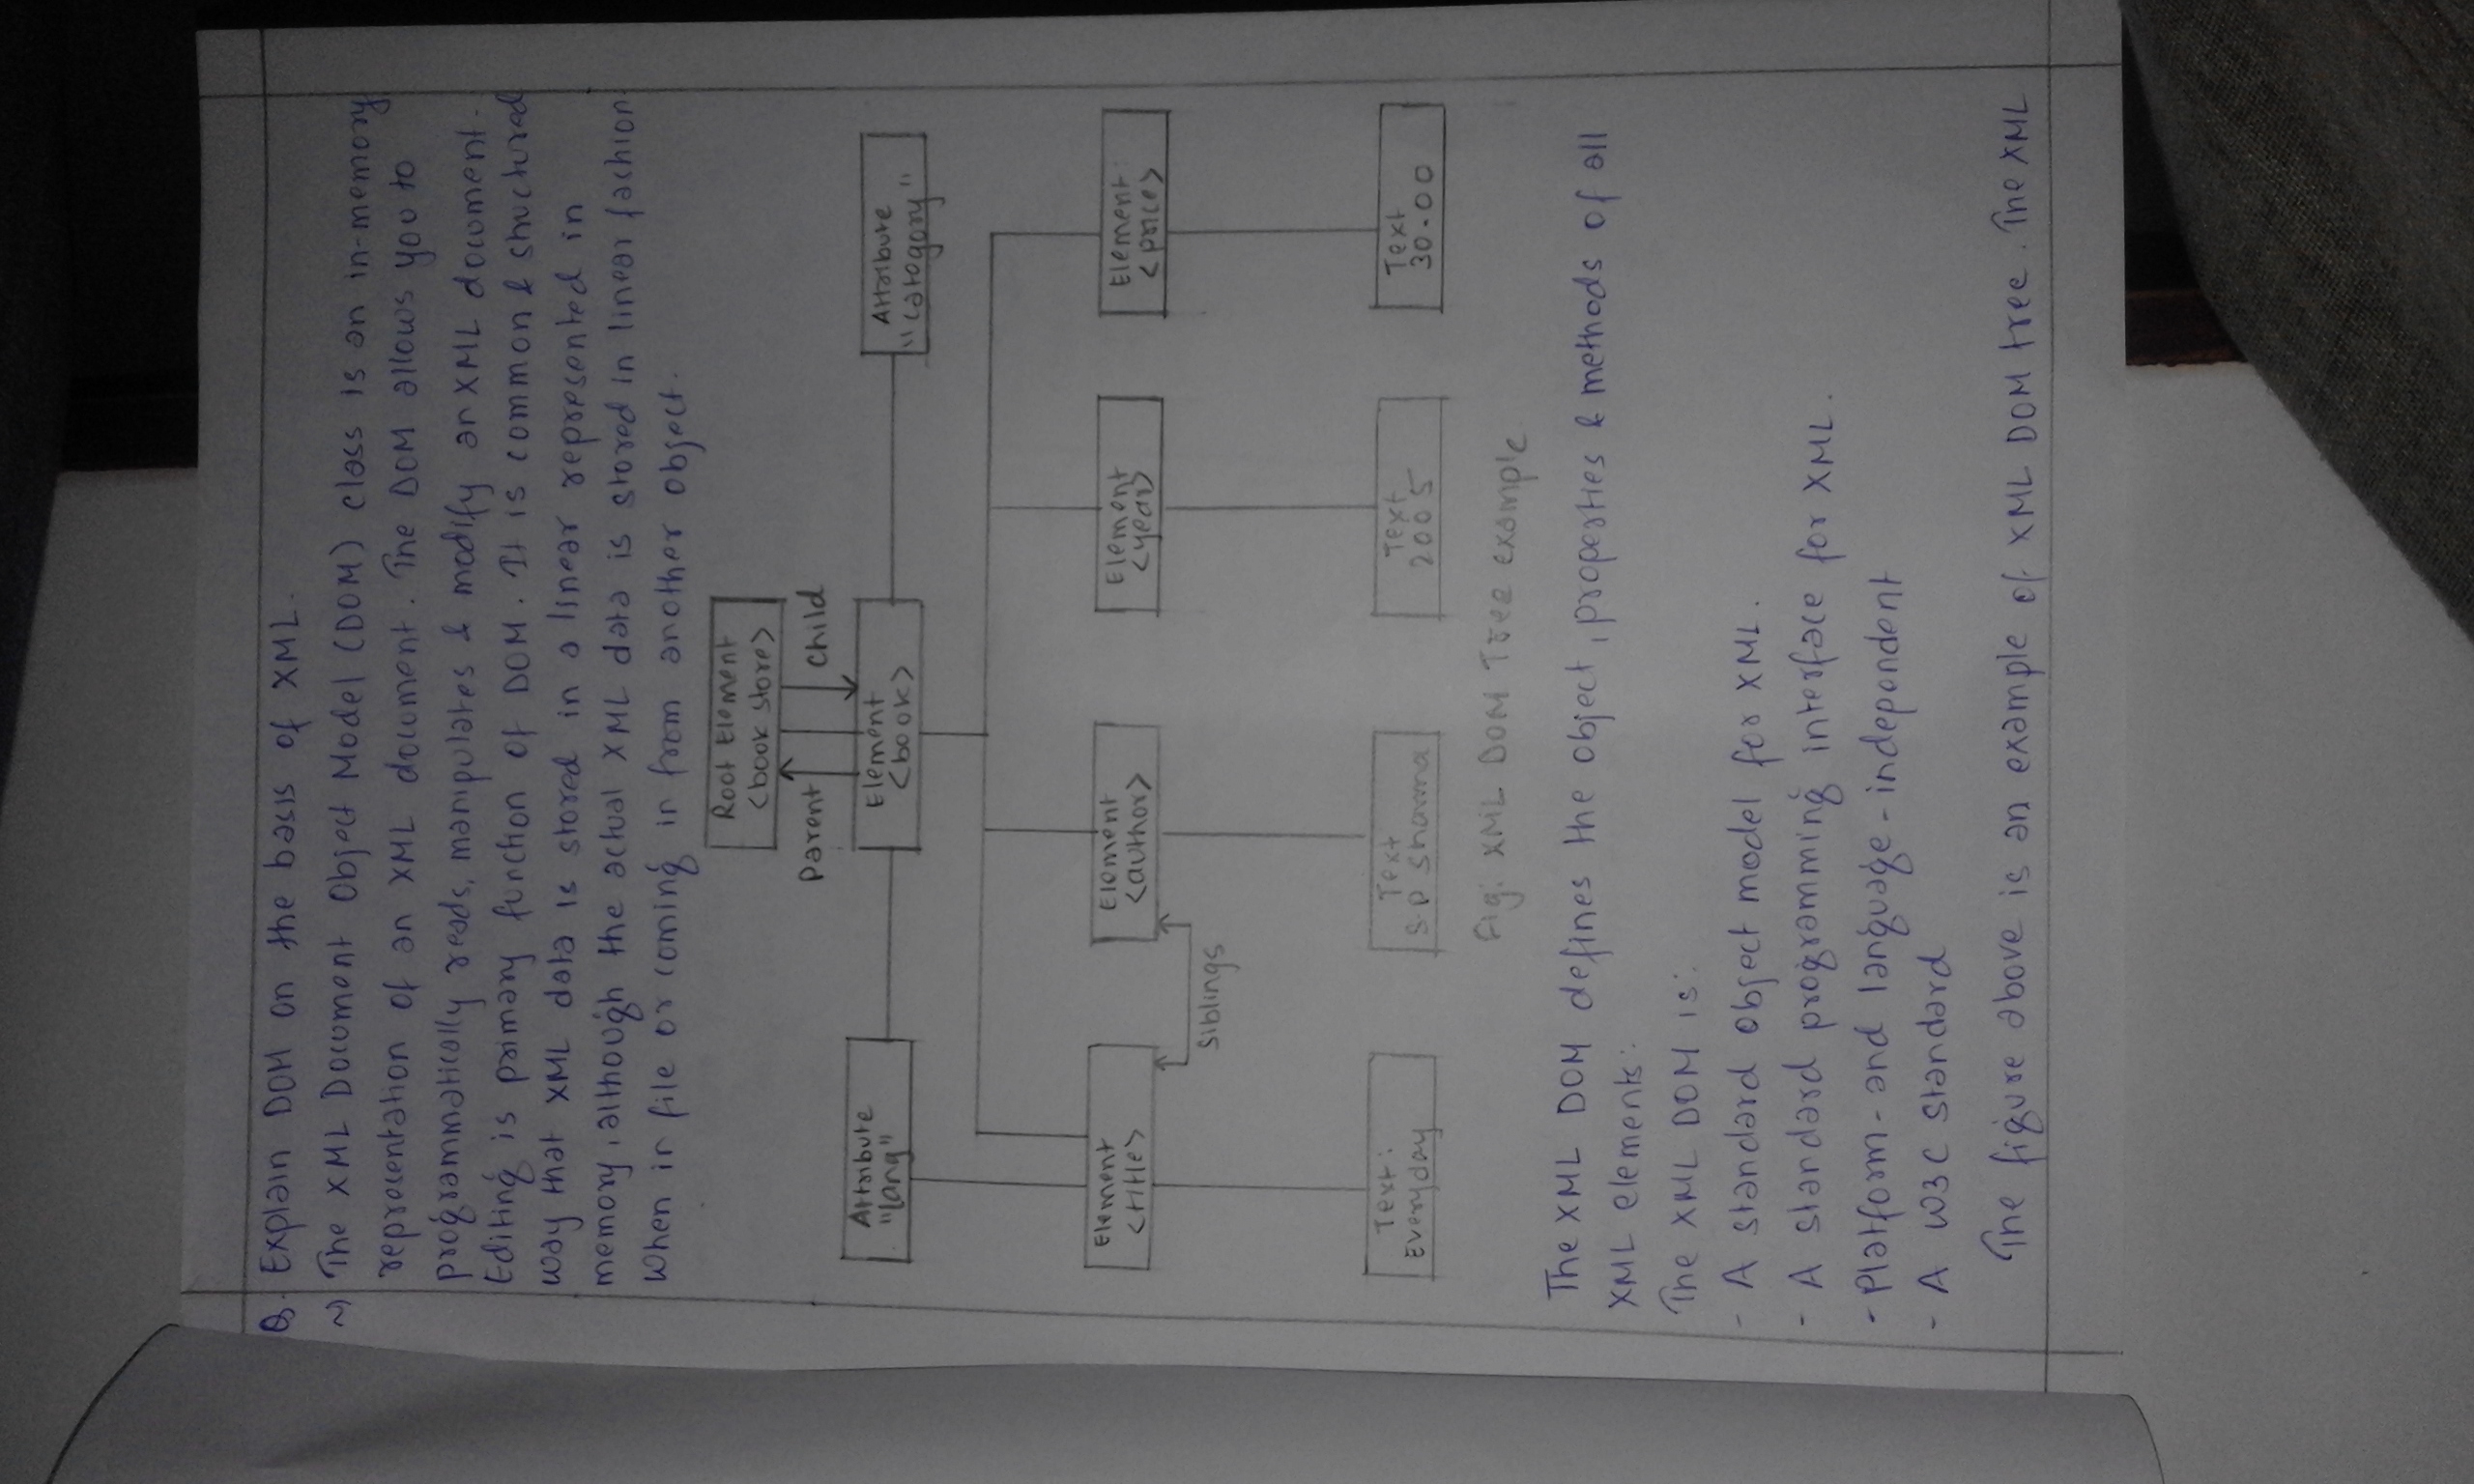 Q. Explain DOM on the basis of XML.
The XML Document Object Model (DOM) class is an in-memory
reprecentation of an XML document. The DOM allows you to
programmatically reads, manipulates & modify an XML document.
Editing is primary function of DOM. It is common & structured
way that XML data is stored in a linear represented in
memory, although the actual XML data is stored in linear fachion
When in file or coming in from another object.
Root Element
<book store>
Parent
Child
Attribute
"lang"
Element
<book>
Attribute
"category"
Element
<title>
Element
<author>
Element
<year>
Element
<price>
Siblings
Text:
Everyday
Text
S.P Sharma
Text
2005
Text
30.00
Fig: XML DOM Tree example
The XML DOM defines the object, properties & methods of all
XML elements:
The XML DOM is:
- A standard object model for XML.
- A standard programming interface for XML.
- Platform- and language-independent
- A W3C standard
The figure above is an example of XML DOM tree. The XML